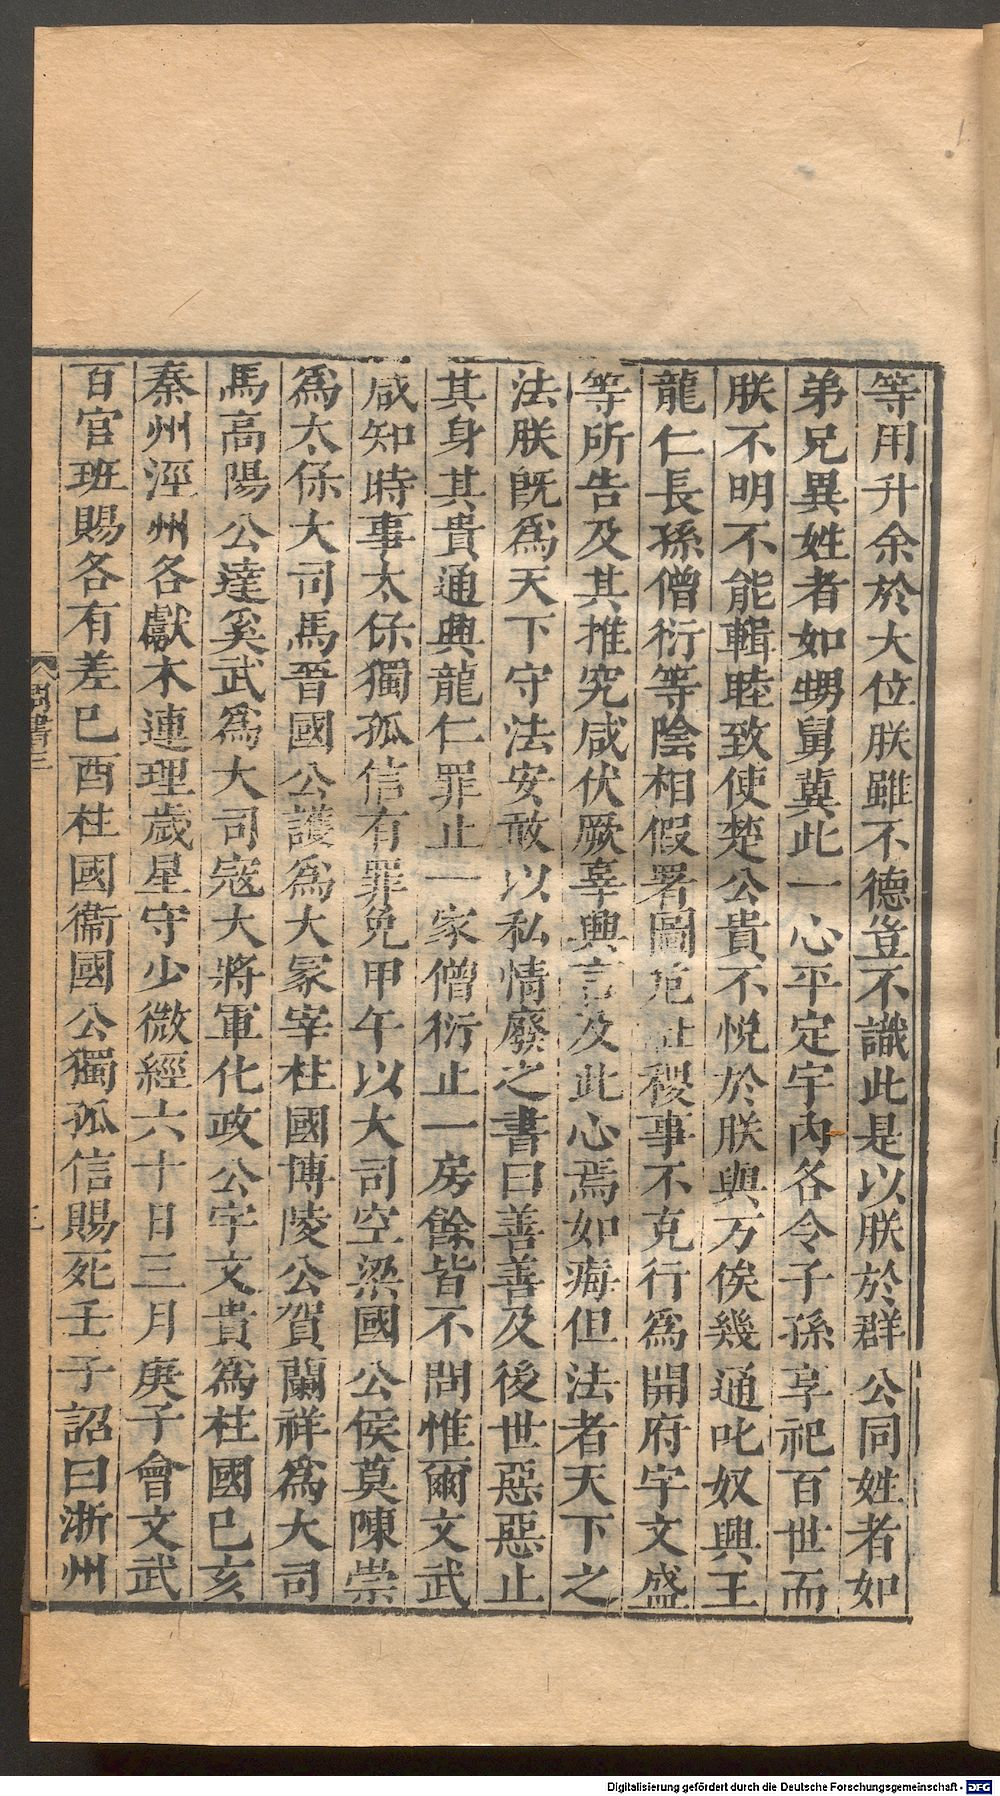 等用升余於大位朕雖不德豈不識此是以朕於群公同姓者如
弟兄異姓者如甥舅冀此一心平定宇內各令子孫享祀百世而
朕不明不能輯睦致使楚公貴不悅於朕與万俟幾通叱奴興王
龍仁長孫僧衍等陰相假署圖危社稷事不克行爲開府宇文盛
等所告及其推究咸伏厥辜興言及此心焉如痗但法者天下之
法朕既爲天下守法安敢以私情廢之書曰善善及後世惡惡止
其身其貴通興龍仁罪止一家僧衍止一房餘皆不問惟爾文武
咸知時事太保獨孤信有罪免甲午以大司空梁國公侯莫陳崇
爲太保大司馬晉國公護爲大冢宰柱國博陵公賀蘭祥爲大司
馬高陽公達奚武爲大司寇大將軍化政公宇文貴爲柱國己亥
秦州涇州各獻木連理歲星守少微經六十日三月庚子會文武
百官班賜各有差己酉柱國衞國公獨孤信賜死壬子詔曰淅州
周書三
Digitalisierung gefördert durch die Deutsche Forschungsgemeinschaft - DFG